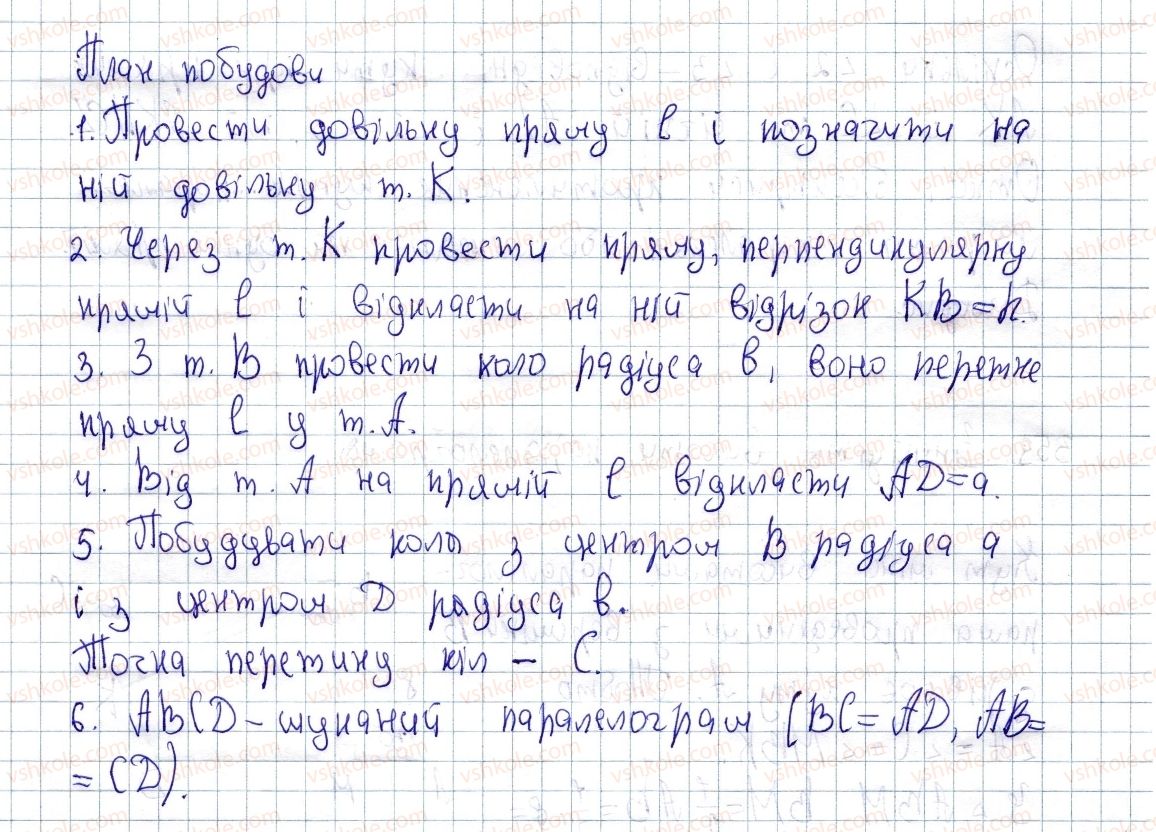 План побудови
1. Провести довільну пряму l і позначити на
ній довільну т. К.
2. Через т. К провести пряму, перпендикулярну
прямій l і відкласти на ній відрізок КВ = h.
3. З т. В провести коло радіуса b, воно перетне
пряму l у т. А.
4. Від т. А на прямій l відкласти AD = a.
5. Побудувати коли з центром В радіуса a
і з центром D радіуса b.
Точка перетину кіл – С.
6. ABCD – шуканий паралелограм (BC = AD, AB =
= CD).